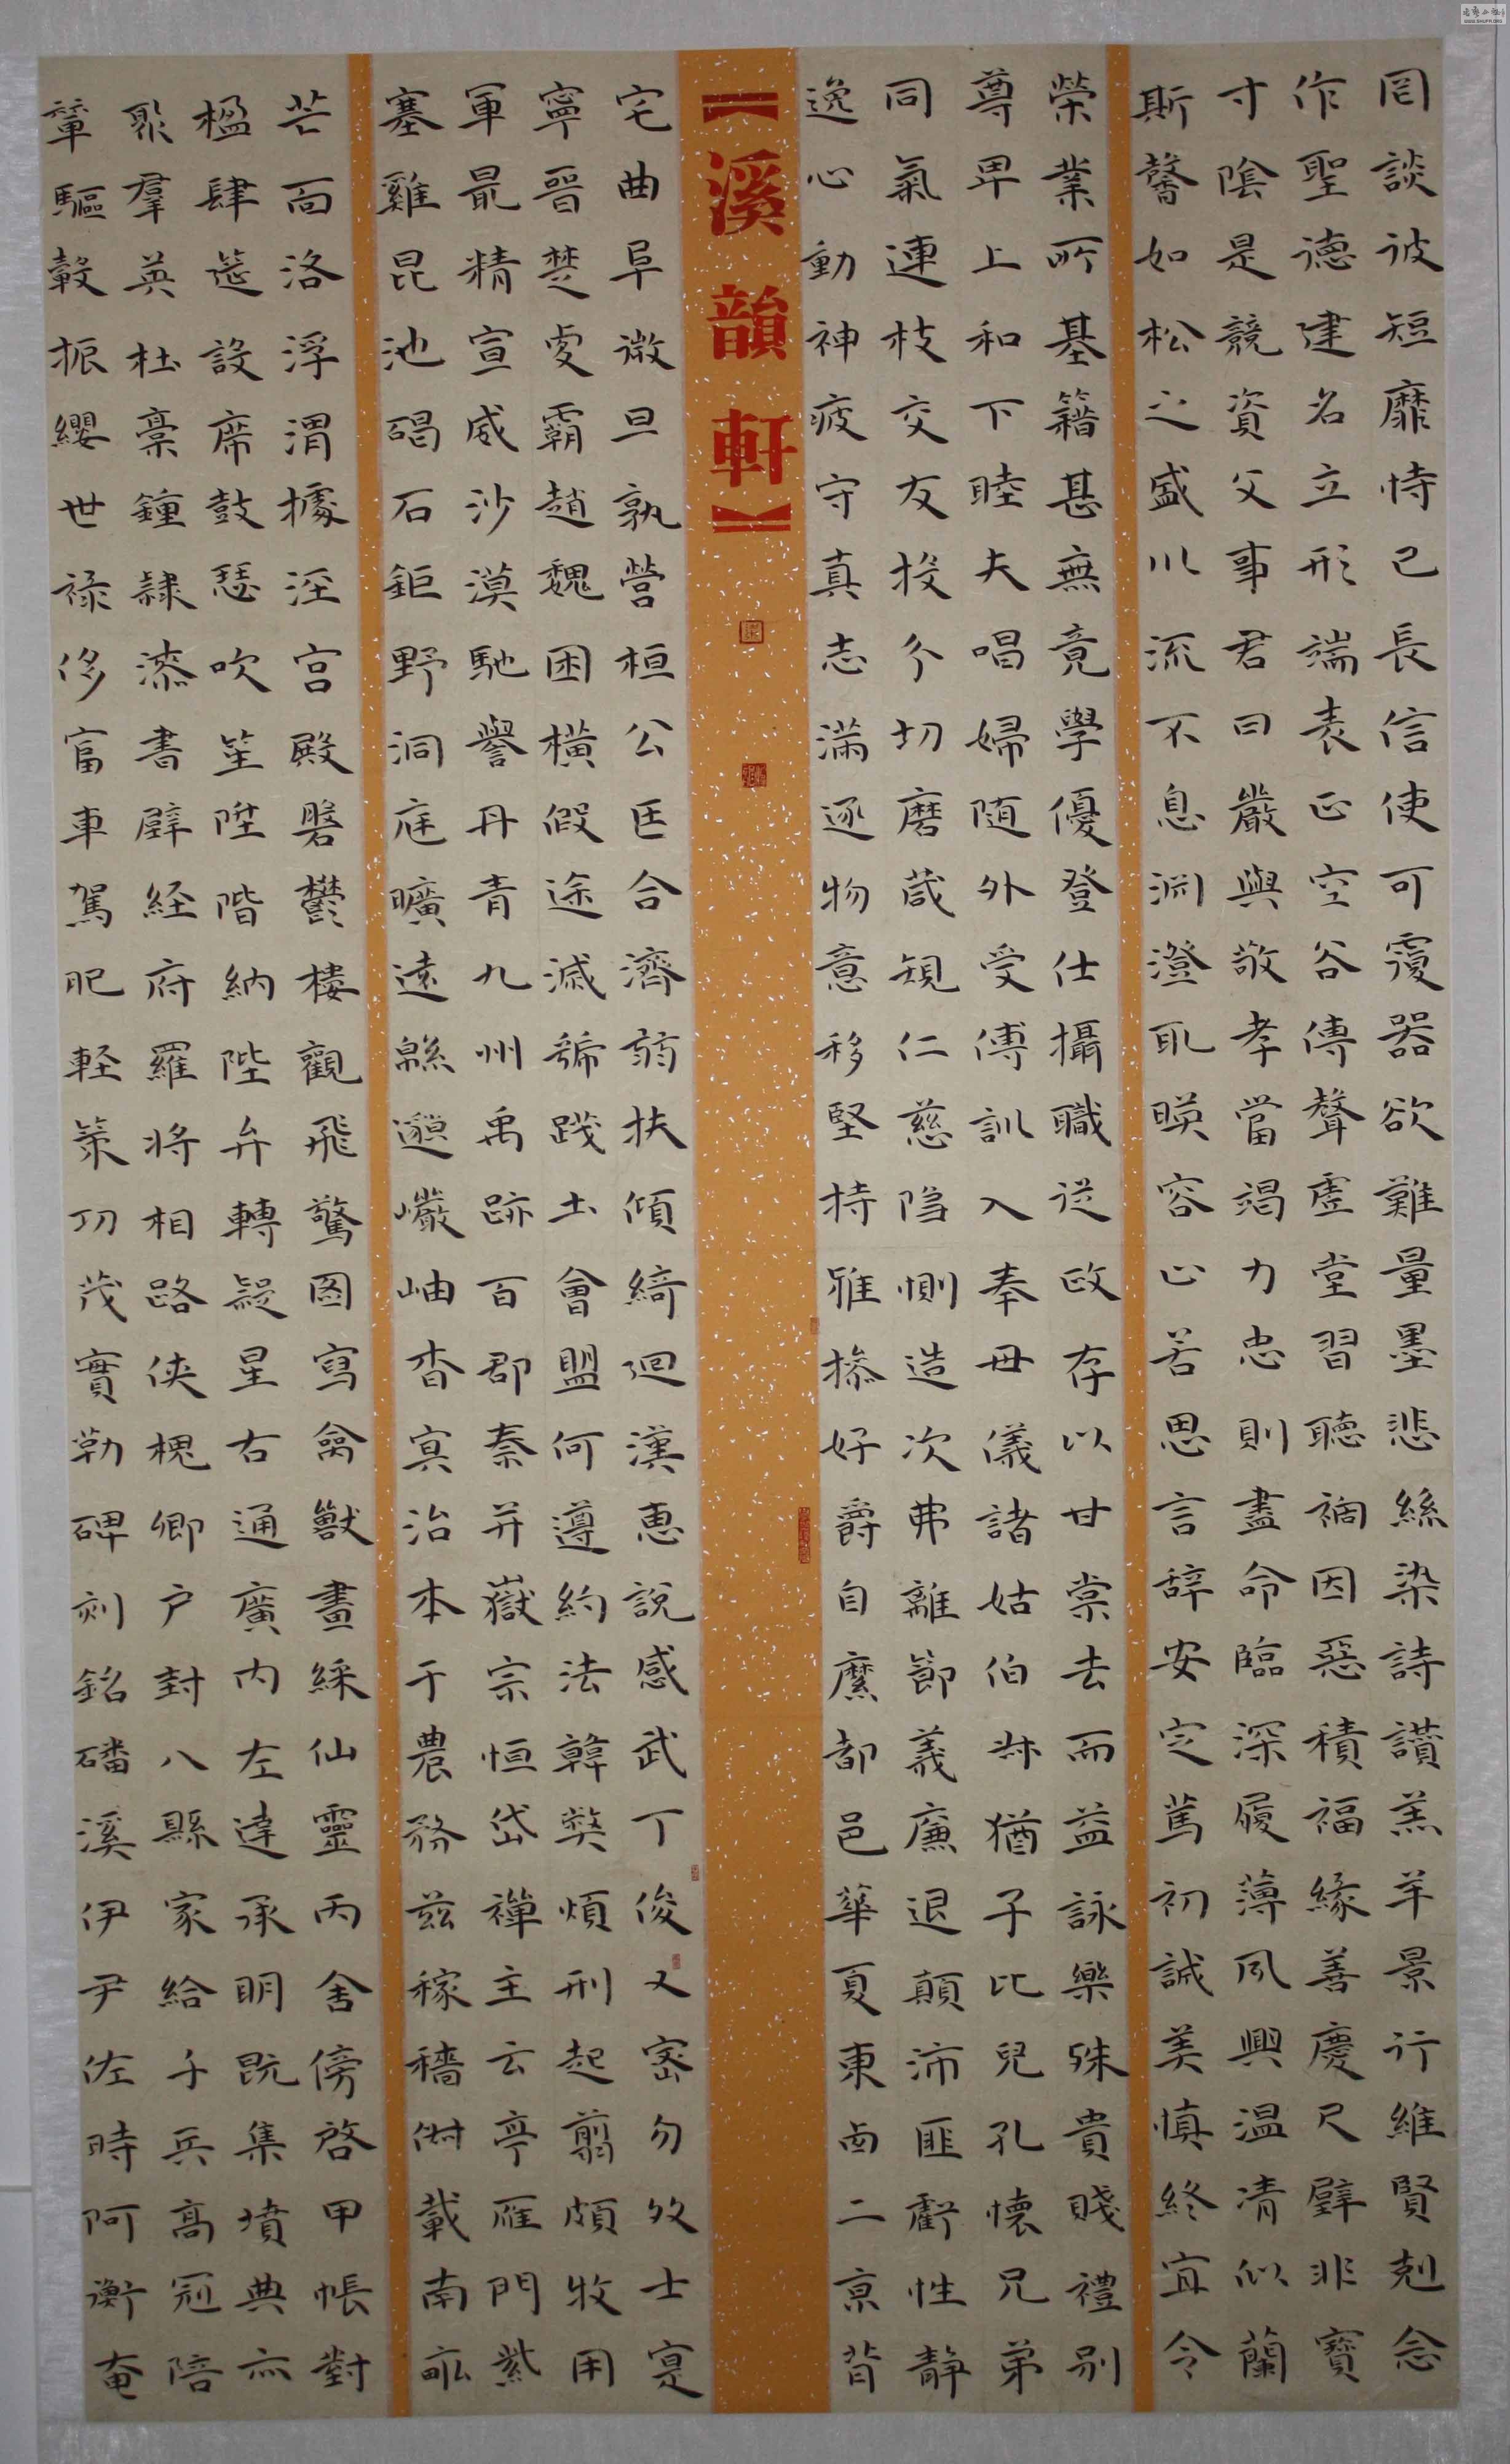 罔談彼短靡恃己長信使可覆器欲難量墨悲絲染詩讚羔羊景行維賢剋念
作聖德建名立形端表正空谷傳聲虛堂習聽禍因惡積福緣善慶尺璧非寶
寸陰是競資父事君曰嚴與敬孝當竭力忠則盡命臨深履薄夙興温凊似蘭
斯馨如松之盛川流不息淵澄取暎容止若思言辞安定篤初誠美慎終宜令
榮業所基籍甚無竟學優登仕攝職從政存以甘棠去而益詠樂殊貴賤禮別
尊卑上和下睦夫唱婦隨外受傅訓入奉母儀諸姑伯叔猶子比兒孔懷兄弟
同氣連枝交友投分切磨箴規仁慈隐惻造次弗離節義廉退顛沛匪虧性靜
逸心動神疲守真志滿逐物意移堅持雅操好爵自縻都邑華夏東西二京背
【溪韻軒】
宅曲阜微旦孰營桓公匡合濟弱扶傾綺迴漢惠說感武丁俊乂密勿多士寔
寧晉楚更霸趙魏困橫假途滅虢踐土會盟何遵約法韓弊煩刑起翦頗牧用
軍最精宣威沙漠馳譽丹青九州禹跡百郡秦并嶽宗恒岱禪主云亭雁門紫
塞雞昆池碣石鉅野洞庭曠遠緜邈巖岫杳冥治本于農務茲稼穡俶載南畝
芒面洛浮渭據涇宮殿磐鬱樓觀飛驚圖寫禽獸畫綵仙靈丙舍傍啓甲帳對
楹肆筵設席鼓瑟吹笙陞階納陛弁轉疑星右通廣內左達承明既集墳典亦
聚羣英杜稾鍾隸漆書壁経府羅将相路俠槐卿户封八縣家給千兵高冠陪
輦驅轂振纓世禄侈富車駕肥軽策功茂實勒碑刻銘磻溪伊尹佐時阿衡奄